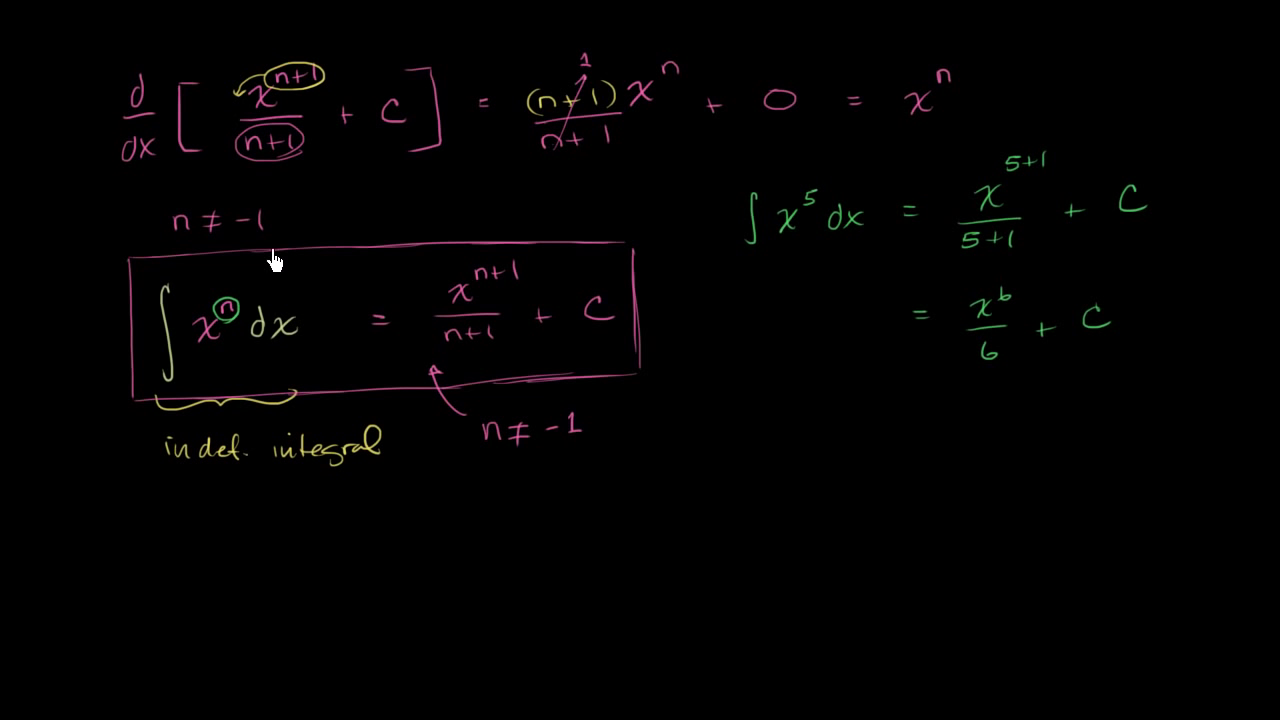 d/dx [ x^(n+1)/(n+1) + C ] = (n+1)x^n/(n+1) + 0 = x^n
1
n ≠ -1
∫ x^n dx = x^(n+1)/(n+1) + C
indef. integral
n ≠ -1
∫ x^5 dx = x^(5+1)/(5+1) + C
= x^6/6 + C